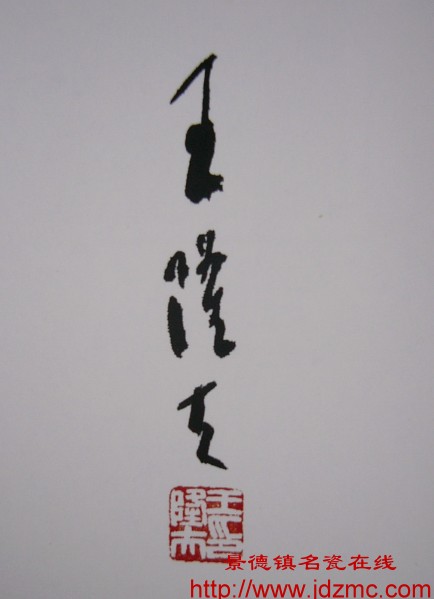 王隆夫
王印隆夫
景德镇名瓷在线
http://www.jdzmc.com